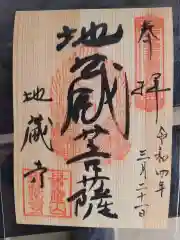 奉拝
令和四年
三月二十一日
地蔵菩薩
地蔵寺